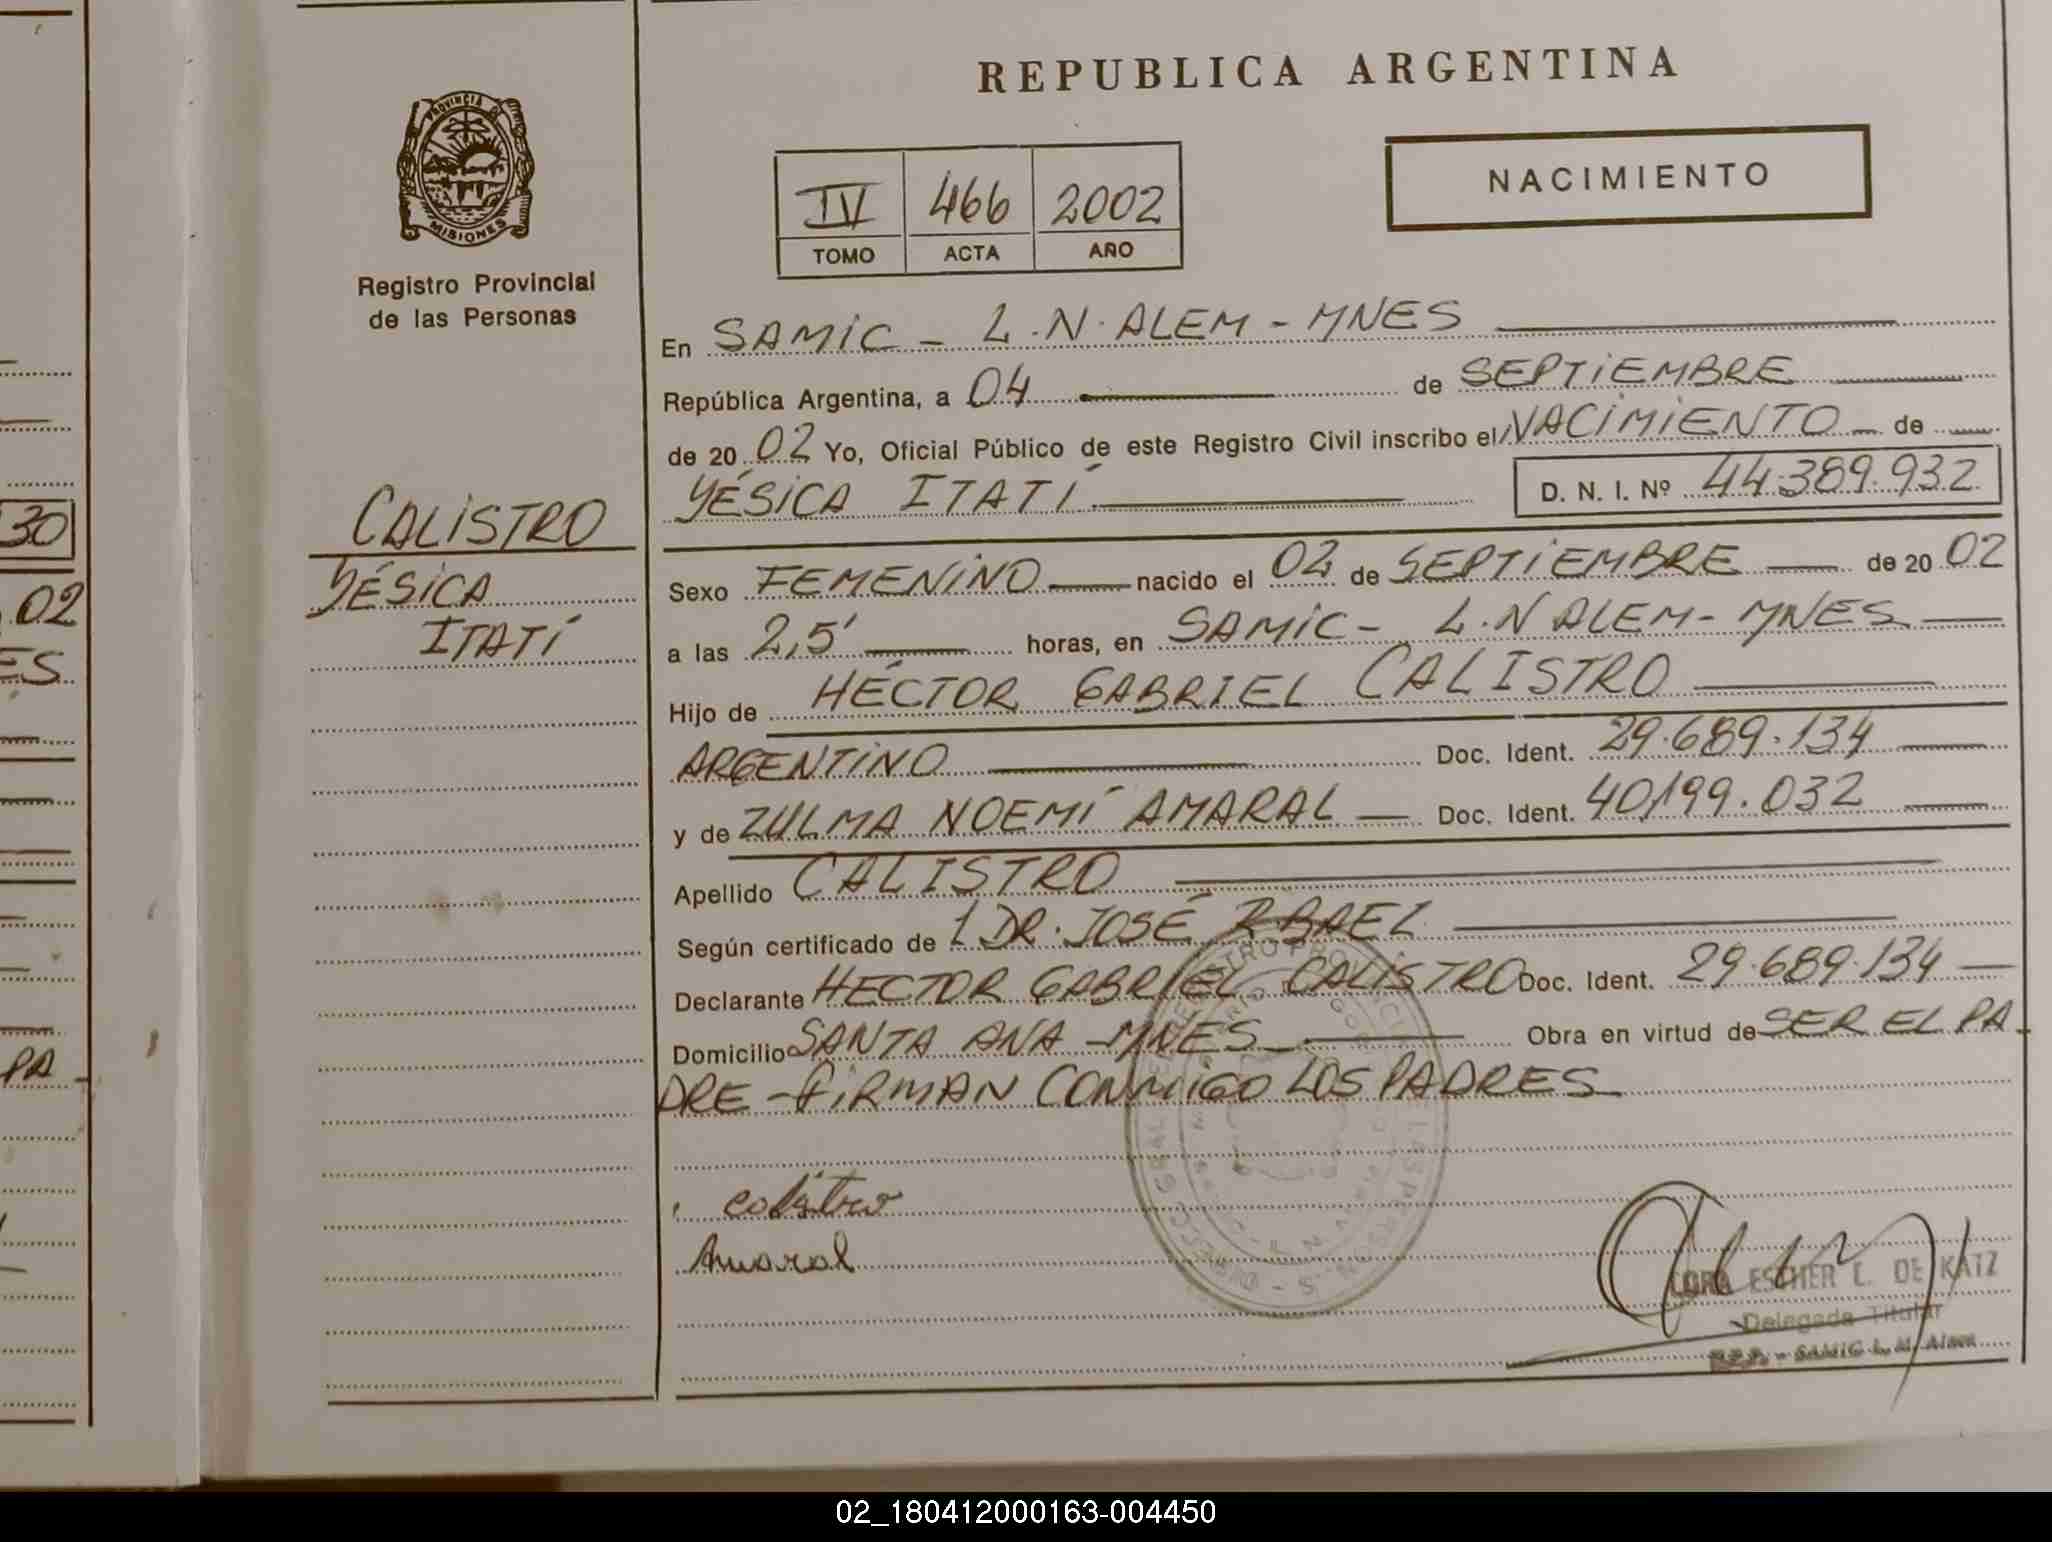 REPUBLICA ARGENTINA
PROVINCIA DE
MISIONES
Registro Provincial
de las Personas
IV 466 2002
TOMO ACTA AÑO
NACIMIENTO
En SAMIC - L.N. ALEM - MNES
República Argentina, a 04 de SEPTIEMBRE
de 20 02 Yo, Oficial Público de este Registro Civil inscribo el NACIMIENTO de
YÉSICA ITATÍ D. N. I. Nº 44.389.932
CALISTRO
YÉSICA
ITATÍ
Sexo FEMENINO nacido el 02 de SEPTIEMBRE de 20 02
a las 2,5' horas, en SAMIC - L.N ALEM - MNES
Hijo de HÉCTOR GABRIEL CALISTRO
ARGENTINO Doc. Ident. 29.689.134
y de ZULMA NOEMÍ AMARAL Doc. Ident. 40.199.032
Apellido CALISTRO
Según certificado de 1 DR. JOSÉ
Declarante HECTOR GABRIEL CALISTRO Doc. Ident. 29.689.134
Domicilio SANTA ANA - MNES Obra en virtud de SER EL PA-
DRE - FIRMAN CONMIGO LOS PADRES
calistro
Amaral
ESTHER L. DE KATZ
Delegada Titular
SAMIC L. N. Alem
30
02
ES
PA-
02_180412000163-004450